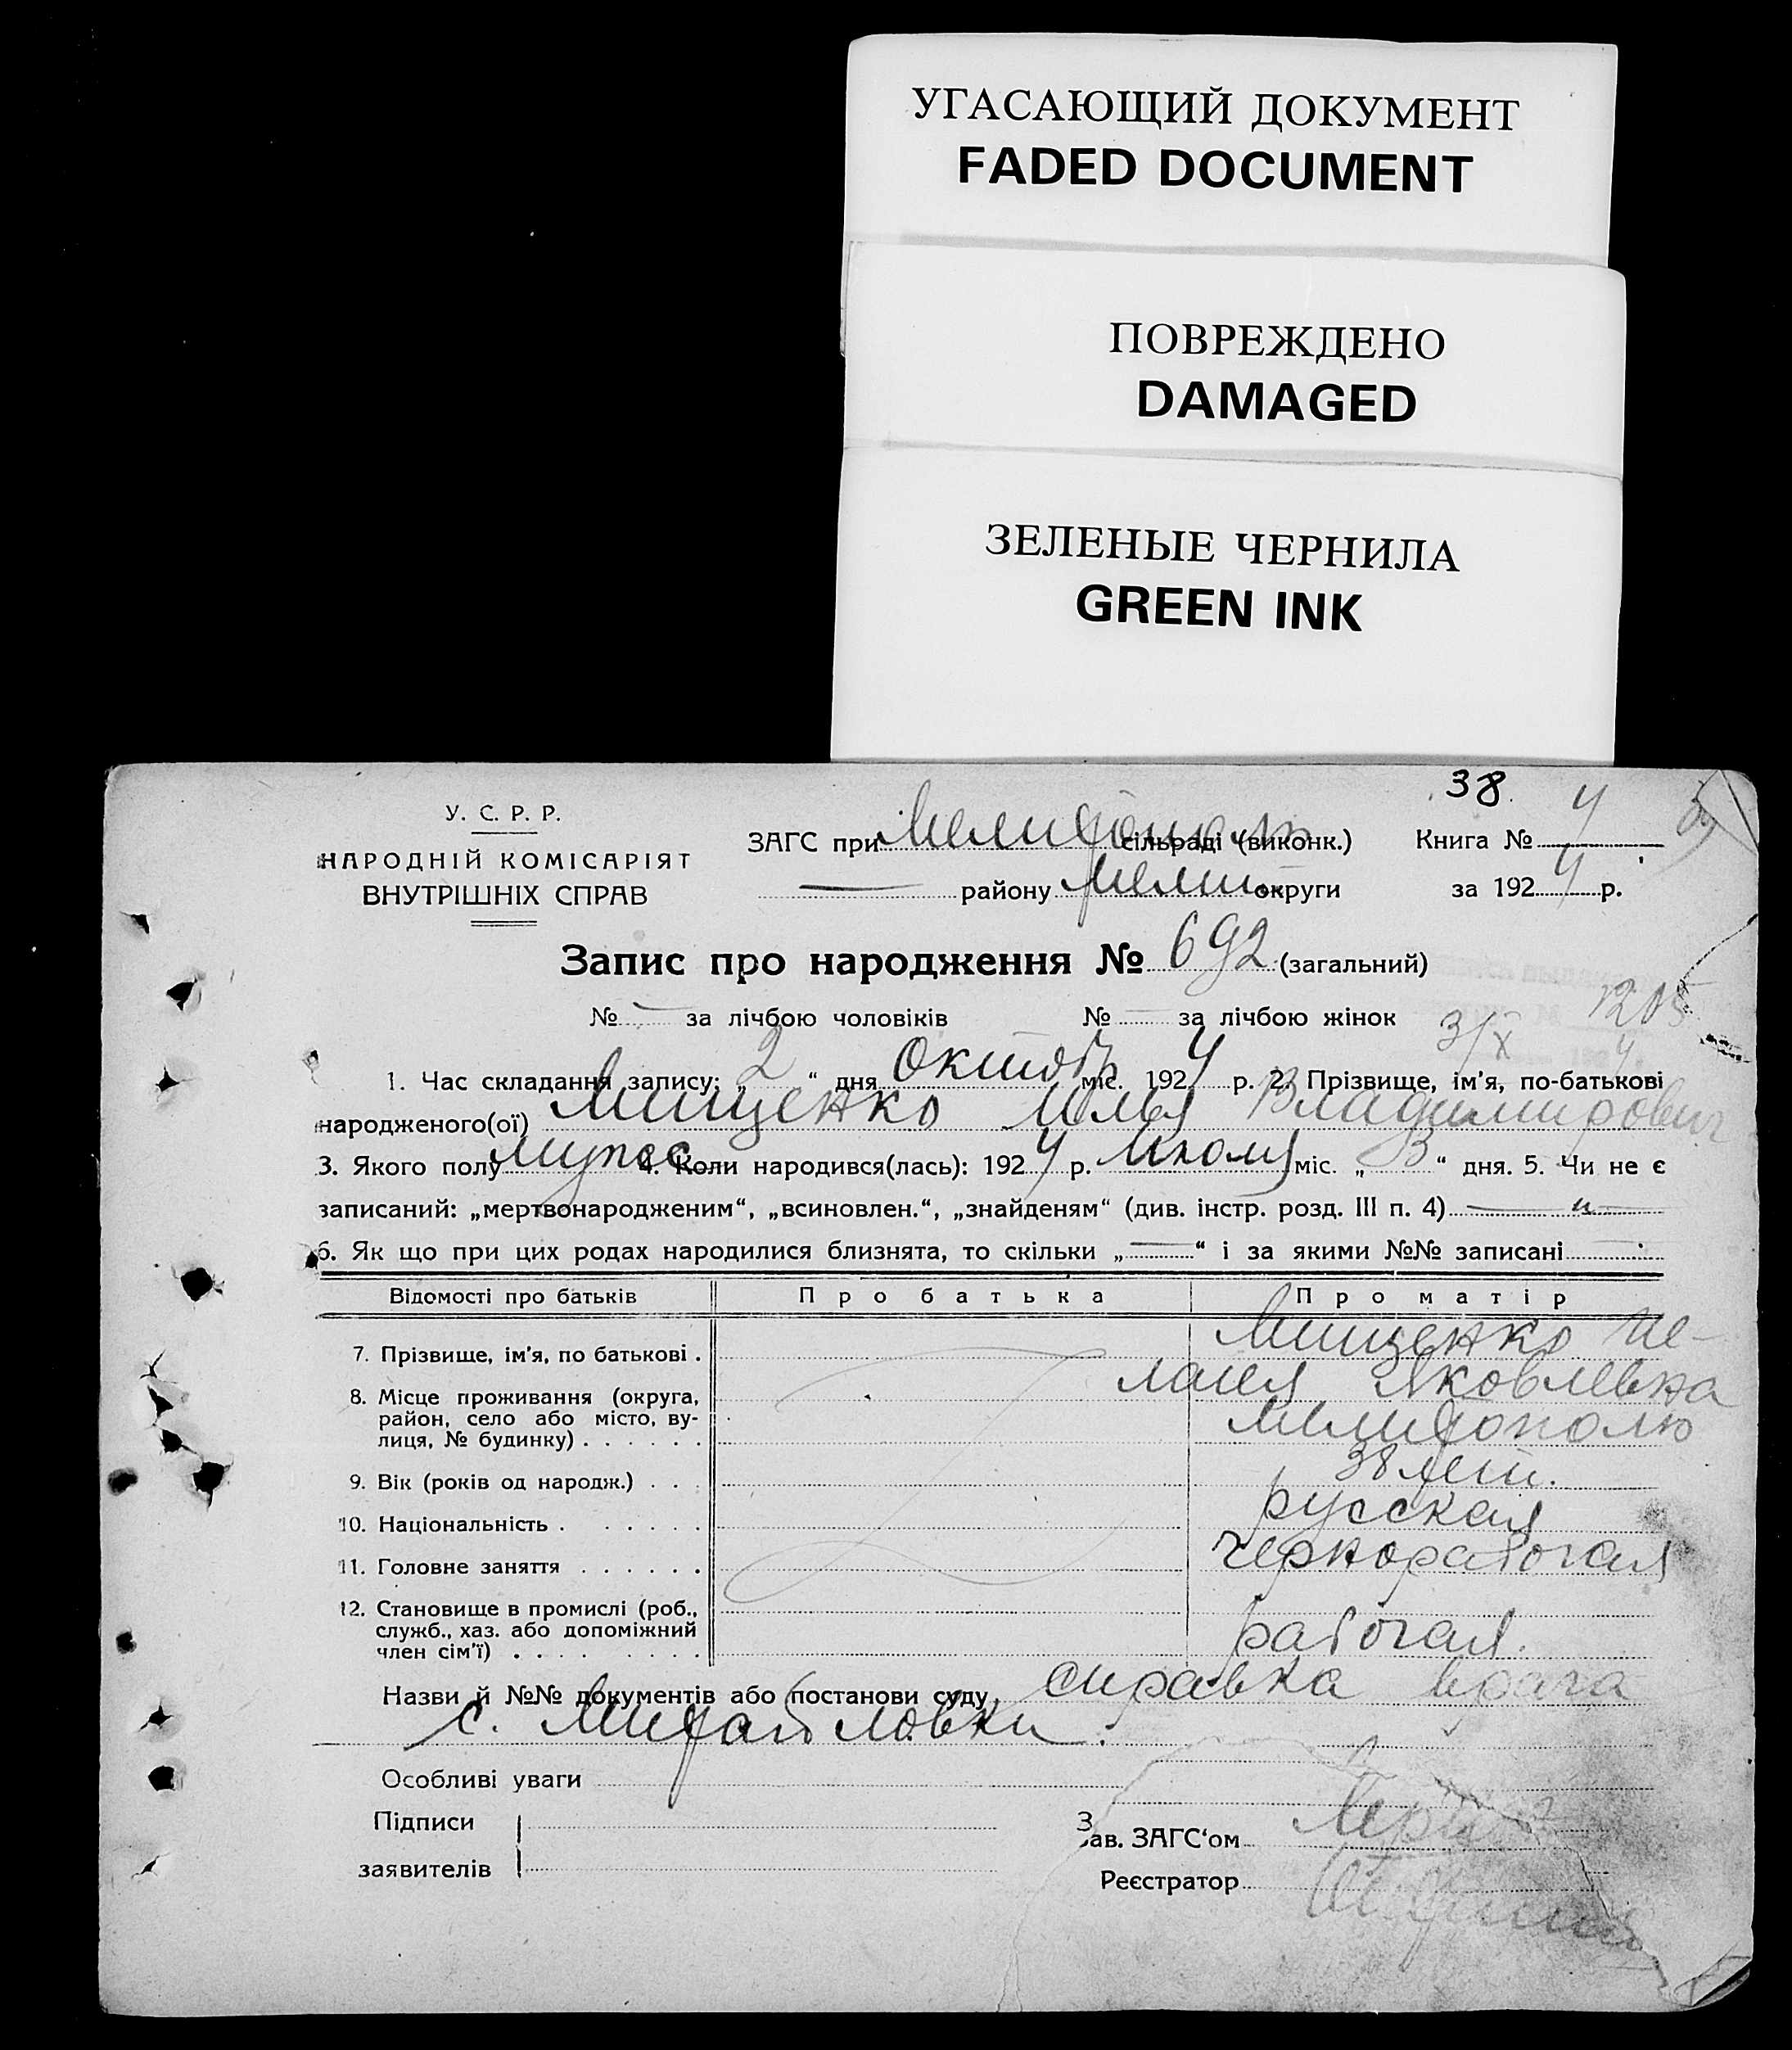 УГАСАЮЩИЙ ДОКУМЕНТ
FADED DOCUMENT
ПОВРЕЖДЕНО
DAMAGED
ЗЕЛЕНЫЕ ЧЕРНИЛА
GREEN INK
38.
У. С. Р. Р.
НАРОДНІЙ КОМІСАРІЯТ
ВНУТРІШНІХ СПРАВ
ЗАГС при Мелитополь сільраді (виконк.) Книга № 4
— району Мелит. округи за 1924 р.
Запис про народження № 692 (загальний)
№ — за лічбою чоловіків № — за лічбою жінок 3/X 1205
1. Час складання запису: „ 2 “ дня Октябр міс. 1924 р. 2. Прізвище, ім’я, по-батькові
народженого(ої) Мищенко Илья Владимирович
3. Якого полу мужс. 4. Коли народився(лась): 1924 р. Июля міс. „ 3 “ дня. 5. Чи не є
записаний: „мертвонародженим“, „всиновлен.“, „знайденям“ (див. інстр. розд. III п. 4) — „ —
6. Як що при цих родах народилися близнята, то скільки „ — “ і за якими №№ записані
Відомості про батьків Про батька Про матір
7. Прізвище, ім’я, по батькові . Мищенко Пе-
лагея Яковлевна
8. Місце проживання (округа,
район, село або місто, ву-
лиця, № будинку) . . . . . . Мелитополю
9. Вік (років од народж.) . . . 38 лет.
10. Національність . . . . . . русская
11. Головне заняття . . . . . . чернорабочая
12. Становище в промислі (роб.,
служб., хаз. або допоміжний
член сім’ї) . . . . . . . . . рабочая.
Назви й №№ документів або постанови суду справка врача
с. Михайловки.
Особливі уваги
Підписи
заявителів
Зав. ЗАГС‘ом
Реєстратор